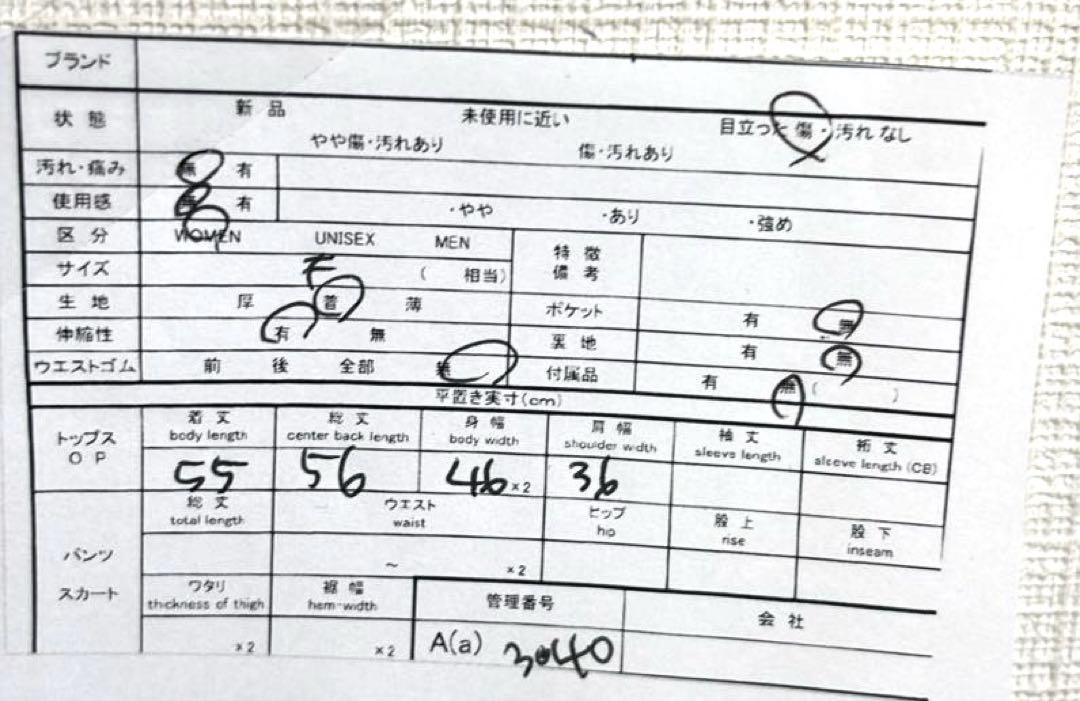 ブランド
状態 新品 未使用に近い 目立った傷・汚れなし
やや傷・汚れあり 傷・汚れあり
汚れ・痛み 無 有
使用感 無 有 ・やや ・あり ・強め
区分 WOMEN UNISEX MEN
特徴
備考
サイズ F ( 相当)
生地 厚 普 薄
ポケット 有 無
伸縮性 有 無
裏地 有 無
ウエストゴム 前 後 全部 無
付属品 有 無 ( )
平置き実寸(cm)
トップス
OP
着丈 総丈 身幅 肩幅 袖丈 裄丈
body length center back length body width shoulder width sleeve length sleeve length (CB)
55 56 46 ×2 36
パンツ
スカート
総丈 ウエスト ヒップ 股上 股下
total length waist hip rise inseam
~ ×2
ワタリ 裾幅 管理番号 会社
thickness of thigh hem-width
×2 ×2 A(a) 3040